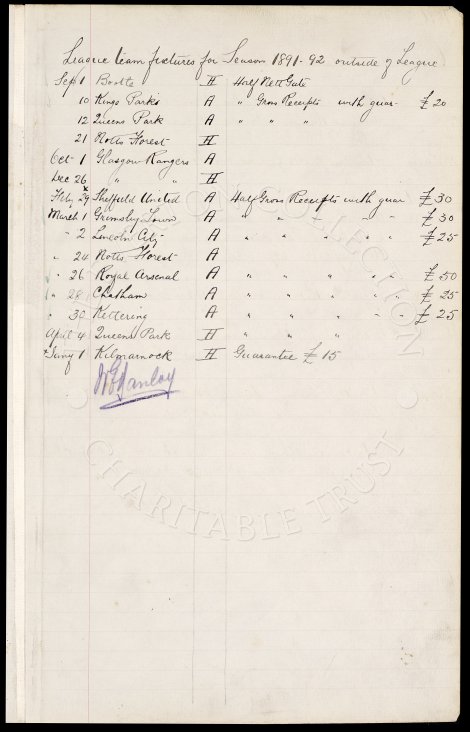 League team fixtures for Season 1891-92 outside of League
Sep 1 Bootle H Half Nett Gate
10 Kings Park A " Gross Receipts with guar £20
12 Queens Park A " " "
21 Notts Forest H
Oct 1 Glasgow Rangers A
Dec 26 " " H
x
Feby 29 Sheffield United A Half Gross Receipts with guar £30
March 1 Grimsby Town A " " " " " £30
" 2 Lincoln City A " " " " " £25
" 24 Notts Forest A
" 26 Royal Arsenal A " " " " " £50
" 28 Chatham A " " " " " £25
" 30 Kettering A " " " " " £25
April 4 Queens Park H " " "
x Jany 1 Kilmarnock H Guarantee £15
COLLECTION
CHARITABLE TRUST